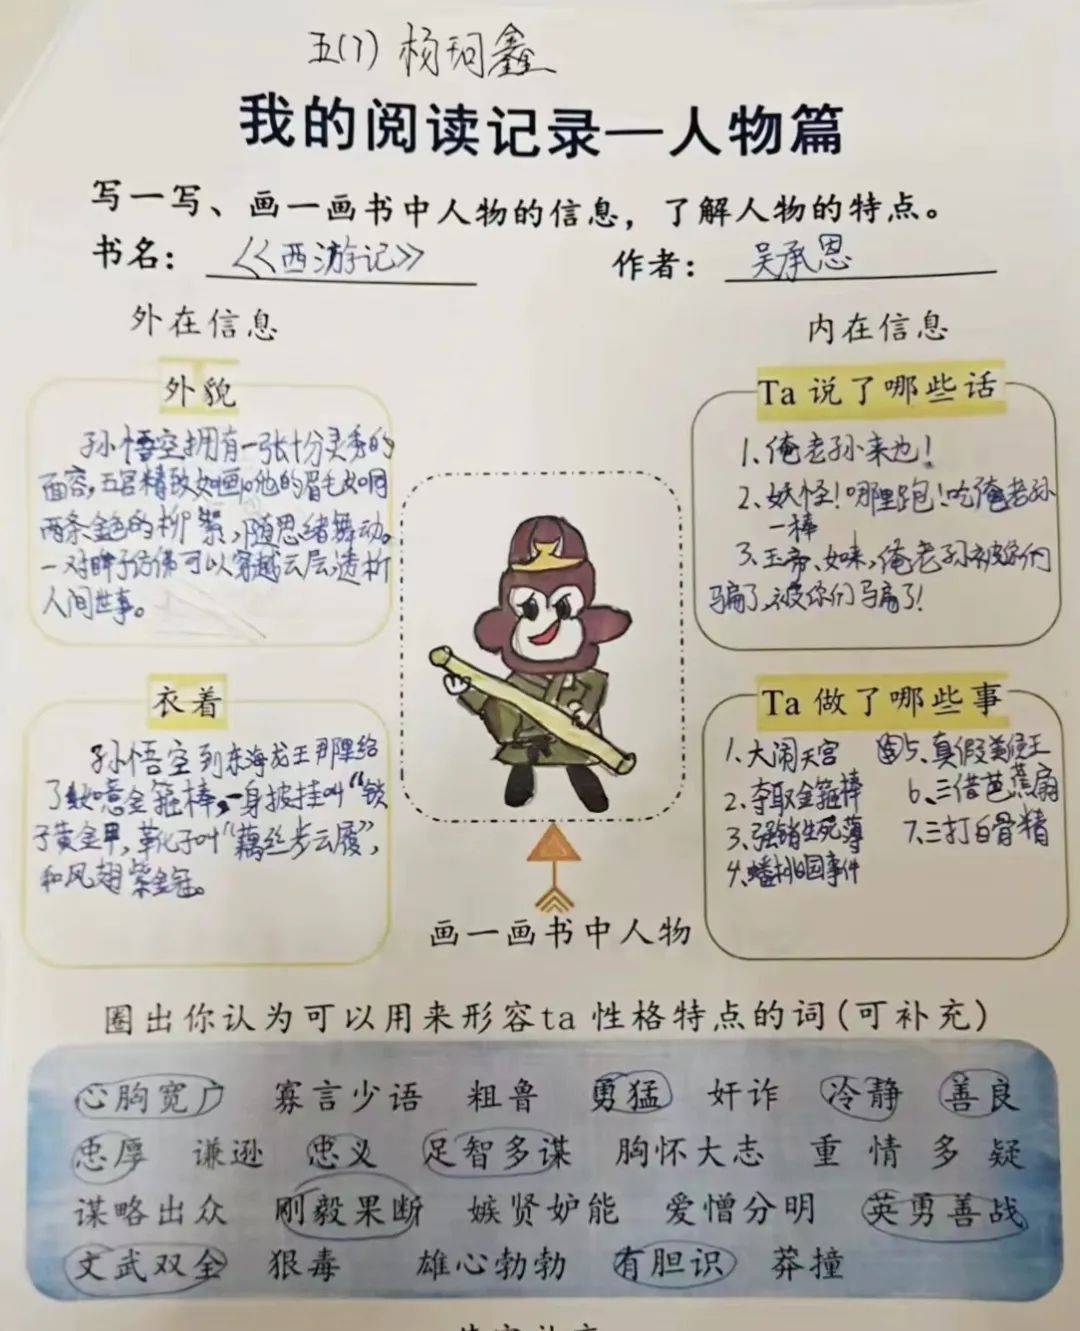 五(7) 杨珂鑫
我的阅读记录—人物篇
写一写、画一画书中人物的信息，了解人物的特点。
书名：《西游记》 作者：吴承恩
外在信息
外貌
孙悟空拥有一张十分灵秀的
面容，五官精致如画。他的眉毛如同
两条金色的柳絮，随思绪舞动。
一对眸子仿佛可以穿越云层，透析
人间世事。
衣着
孙悟空到东海龙王那里给
了如意金箍棒，一身披挂叫“锁
子黄金甲，靴子叫“藕丝步云履”，
和凤翅紫金冠。
画一画书中人物
内在信息
Ta 说了哪些话
1、俺老孙来也！
2、妖怪！哪里跑！吃俺老孙
一棒
3、玉帝、如来，俺老孙被你们
骗了，被你们骗了！
Ta 做了哪些事
1、大闹天宫
2、夺取金箍棒
3、强销生死薄
4、蟠桃园事件
5、真假美猴王
6、三借芭蕉扇
7、三打白骨精
圈出你认为可以用来形容ta 性格特点的词(可补充)
心胸宽广 寡言少语 粗鲁 勇猛 奸诈 冷静 善良
忠厚 谦逊 忠义 足智多谋 胸怀大志 重情 多疑
谋略出众 刚毅果断 嫉贤妒能 爱憎分明 英勇善战
文武双全 狠毒 雄心勃勃 有胆识 莽撞